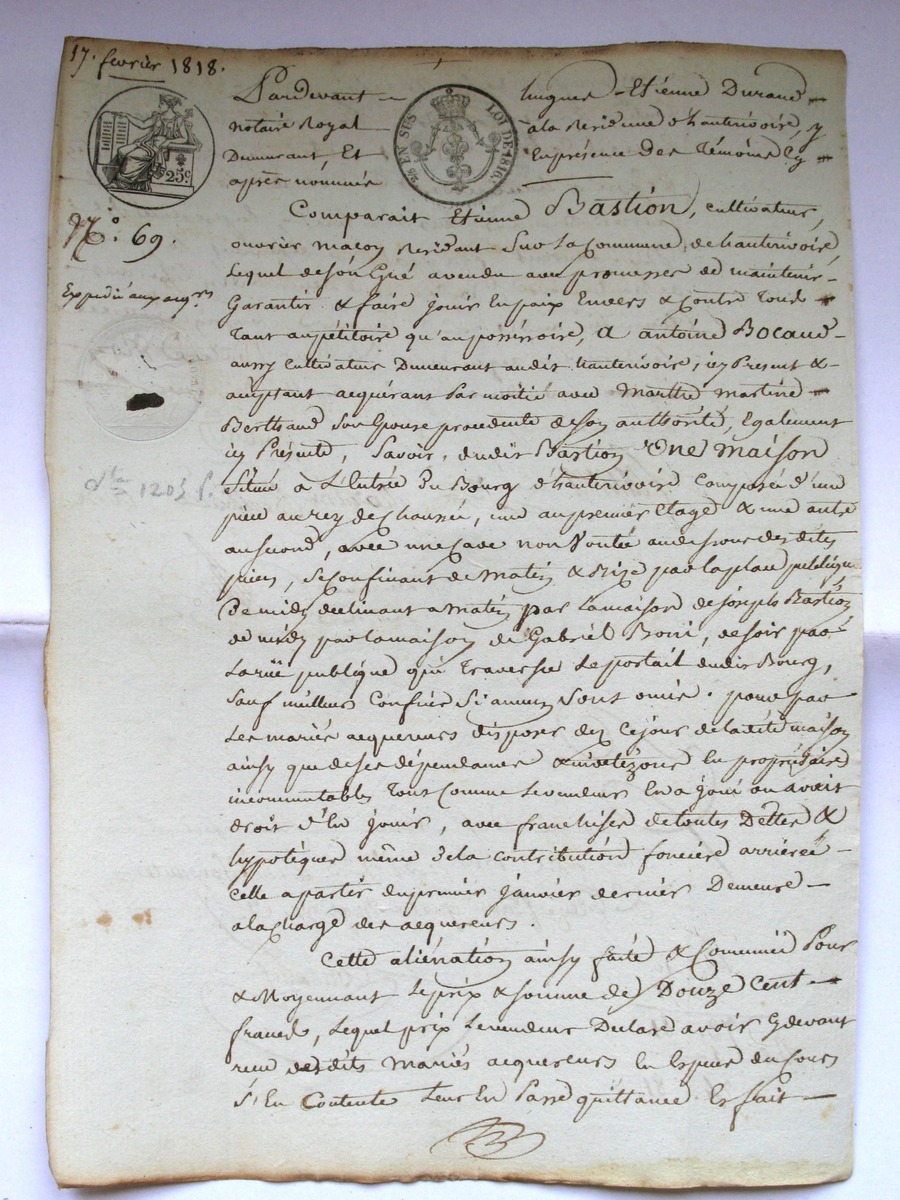 17. fevrier 1818.
Pardevant hugues - Etienne Durand
notaire Royal à la Residence d'hauterivoire, y
Demeurant, Et En présence des Témoins Cy
après nommés
25 EN SUS LOI DE 1816.
25 c
N.o 69.
Expedié aux aeq.rs
Comparait Etienne Bastion, cultivateur,
ouvrier maçon Residant Sur La Commune d'hauterivoire,
Lequel de son Gré a vendu avec promesses de maintenir
Garantir & faire jouir En paix Envers & Contre Tous
Tant au pétitoire qu'au possessoire, A antoine Bocaud
aussy Cultivateur Demeurant audit hauterivoire, icy Present &
acceptant acquérant Par moitié avec Marthe martine
Berthaud Son Epouse procedente de son authorité, Egalement
icy Présente, Savoir, dudit Bastion Une maison
Située à L'Entrée Du Bourg d'hauterivoire Composée d'une
piece au rez de Chaussée, une au premier Etage & une autre
au second, avec une Cave non Voutée au dessous des dites
pieces, Se Confinant de matin & bize par la place publique
De midy declinant a matin par La maison de joseph Bastion
de midy par la maison de Gabriel Boni, de soir par
La rüe publique qui Traverse Le portail dudit Bourg,
Sauf meilleurs Confins Si aucuns Sont omis. pour par
Les mariés acquereurs disposer dez Ce jour de la dite maison
ainsy que de ses dépendances En propriétaires
incommutables Tout Comme Le vendeur En a joui ou avait
droit d'En jouir, avec franchises de toutes Dettes &
hypotéques même de la contribution fonciere arrierée
Celle a partir du premier janvier dernier Demeure
a la Charge des acquereurs.
d.te 1205 f.
Cette aliénation ainsy faite & Pour
& Moyennant Le prix & somme de Douze Cent
francs, Lequel prix Le vendeur Declare avoir Cy devant
recu desdits Mariés acquereurs En Especes du Cours
S'En Contente Leur En Passe quittance Et fait